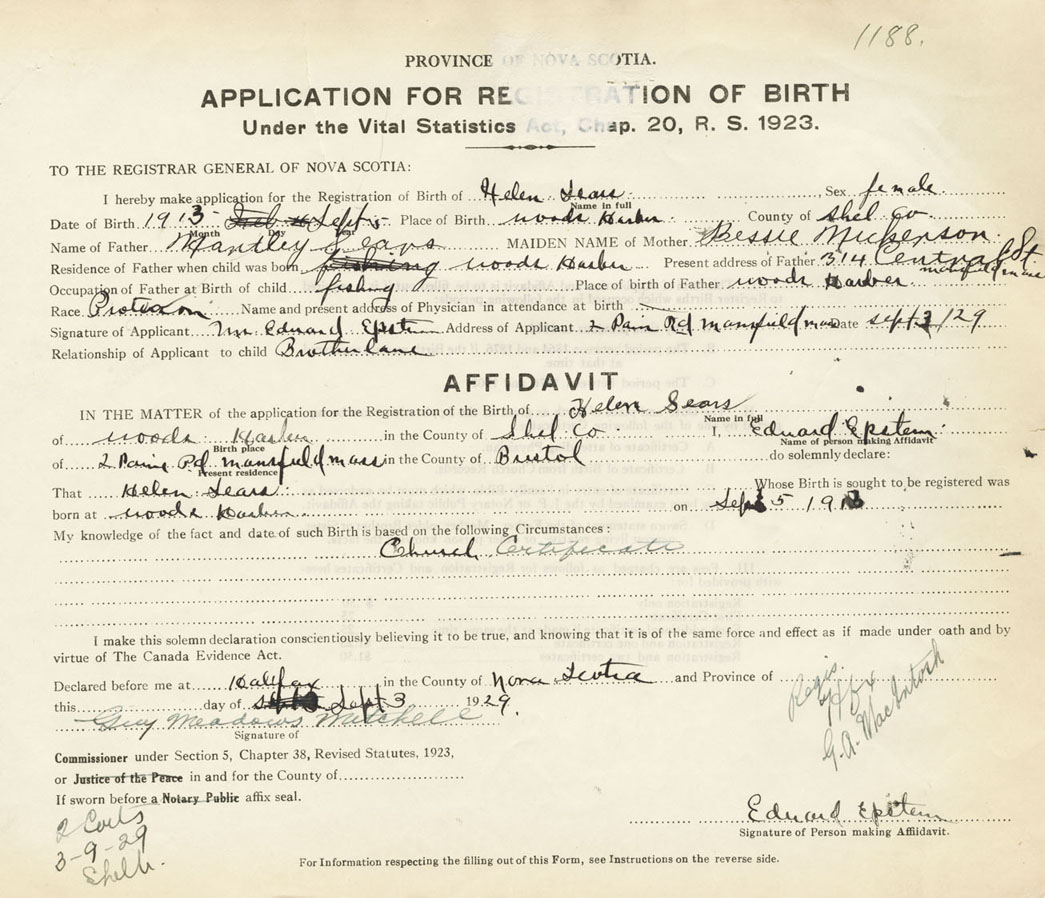 1188.
PROVINCE OF NOVA SCOTIA.
APPLICATION FOR REGISTRATION OF BIRTH
Under the Vital Statistics Act, Chap. 20, R. S. 1923.
TO THE REGISTRAR GENERAL OF NOVA SCOTIA:
I hereby make application for the Registration of Birth of Helen Sears Sex female
Name in full
Date of Birth 1913 Sept 5 Place of Birth woods Harbor County of Shel Co.
Month Day Year
Name of Father Mantley Sears MAIDEN NAME of Mother Bessie Nickerson
Residence of Father when child was born fishing woods Harbor Present address of Father 314 Central St.
mansfield mass
Occupation of Father at Birth of child fishing Place of birth of Father woods Harber
Race Name and present address of Physician in attendance at birth
Signature of Applicant Mr Edward Epstein Address of Applicant 2 Rd mansfield mass Date sept 3/29
Relationship of Applicant to child
AFFIDAVIT
IN THE MATTER of the application for the Registration of the Birth of Helen Sears
Name in full
of woods Harbor in the County of Shel Co I, Edward Epstein
Birth place Name of person making Affidavit
of 2 Rd mansfield mass in the County of Bristol do solemnly declare:
Present residence
That Helen Sears Whose Birth is sought to be registered was
born at woods Harbor on Sept 5 1913
My knowledge of the fact and date of such Birth is based on the following Circumstances:
Church Certificate
I make this solemn declaration conscientiously believing it to be true, and knowing that it is of the same force and effect as if made under oath and by
virtue of The Canada Evidence Act.
Declared before me at Halifax in the County of Nova Scotia and Province of
this day of Sept 3 1929.
Guy Meadows Mitchell
Signature of
Regis.
Hfx
G.A. MacIntosh
Commissioner under Section 5, Chapter 38, Revised Statutes, 1923,
or Justice of the Peace in and for the County of
If sworn before a Notary Public affix seal.
2 Certs
3-9-29
Edward Epstein
Signature of Person making Affiidavit.
For Information respecting the filling out of this Form, see Instructions on the reverse side.